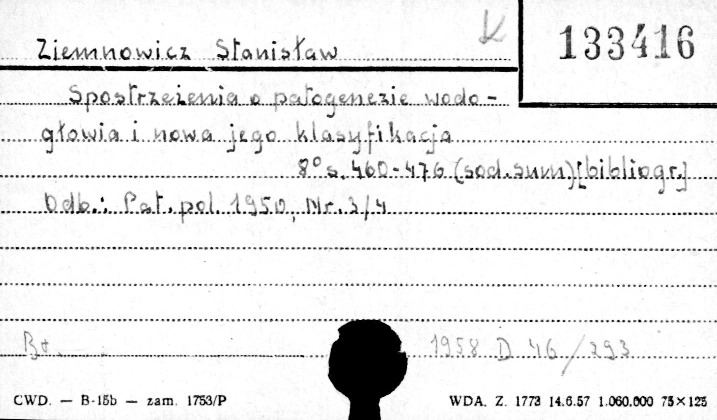 K
133416
Ziemnowicz Stanisław
Spostrzeżenia o patogenezie wodo-
głowia i nowa jego klasyfikacja
8° s. 460-476 (sod. sum) [bibliogr.]
Odb.: Pat. pol. 1950, Nr. 3/4
Bt. 1958 D 46/293
CWD. — B-15b — zam. 1753/P WDA. Z. 1773 14.6.57 1.060.000 75×125